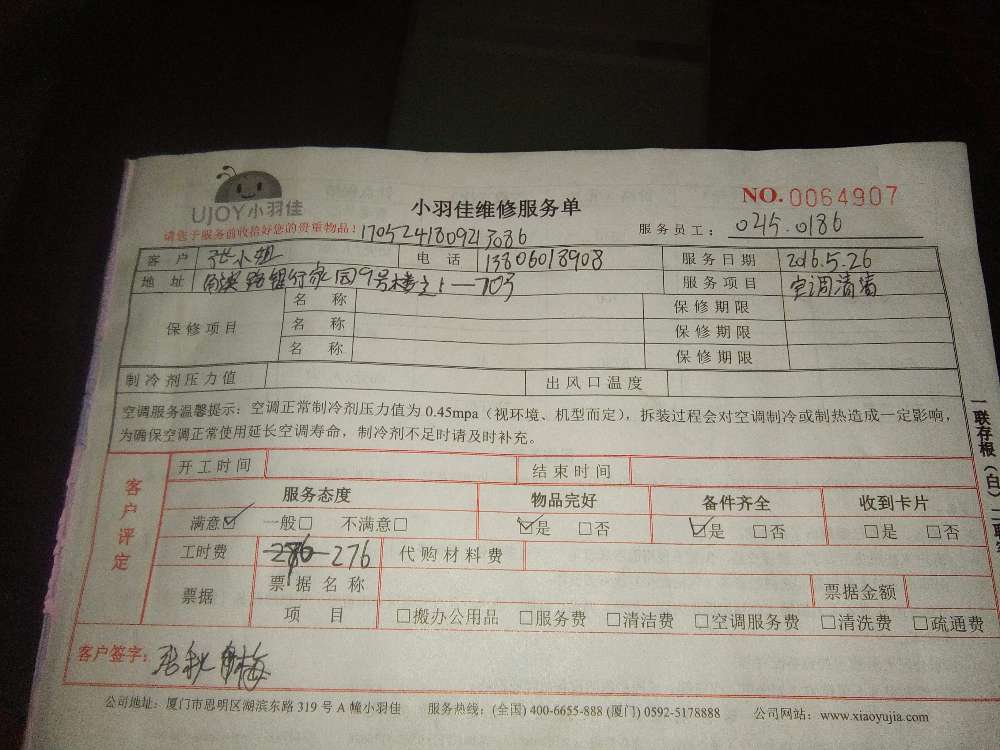 UJOY小羽佳
小羽佳维修服务单
NO.0064907
请您于服务前收拾好您的贵重物品!
1705241809213086
服务员工: 0245.0186
客户 张小姐 电话 13806018908 服务日期 2016.5.26
地址 银行家园9号楼之1—703 服务项目 空调清洁
保修项目
名称 保修期限
名称 保修期限
名称 保修期限
制冷剂压力值 出风口温度
空调服务温馨提示:空调正常制冷剂压力值为 0.45mpa(视环境、机型而定),拆装过程会对空调制冷或制热造成一定影响,
为确保空调正常使用延长空调寿命,制冷剂不足时请及时补充。
客户评定
开工时间 结束时间
服务态度 物品完好 备件齐全 收到卡片
满意☑ 一般□ 不满意□ ☑是 □否 ☑是 □否 □是 □否
工时费 276 代购材料费
票据 票据名称 票据金额
项目 □搬办公用品 □服务费 □清洁费 □空调服务费 □清洗费 □疏通费
客户签字:
公司地址:厦门市思明区湖滨东路 319 号 A 幢小羽佳 服务热线:(全国) 400-6655-888 (厦门) 0592-5178888 公司网站:www.xiaoyujia.com
一联存根(白)二联